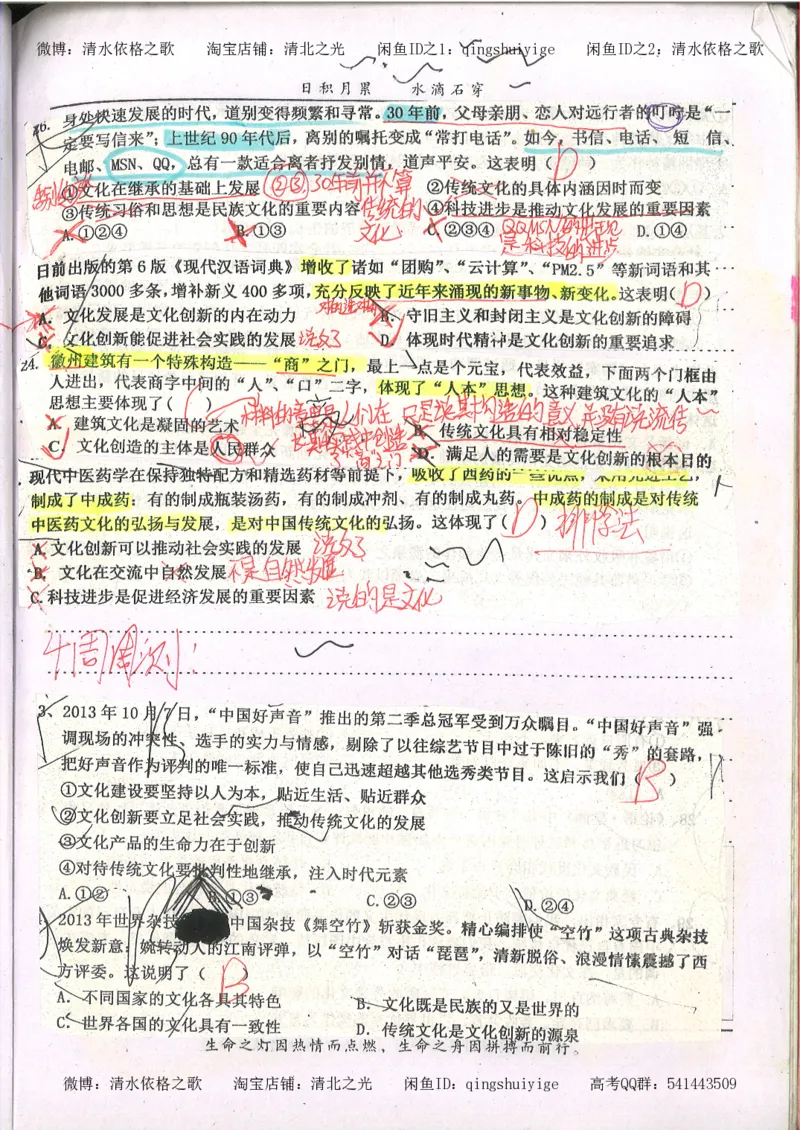 微博：清水依格之歌 淘宝店铺：清北之光 闲鱼ID之1：qingshuiyige 闲鱼ID之2：清水依格之歌
日积月累 水滴石穿
26. 身处快速发展的时代，道别变得频繁和寻常。30年前，父母亲朋、恋人对远行者的叮咛是“一
定要写信来”；上世纪90年代后，离别的嘱托变成“常打电话”。如今，书信、电话、短信、
电邮、MSN、QQ，总有一款适合离者抒发别情，道声平安。这表明（ D ）
①文化在继承的基础上发展 ②③30年前并不算 ②传统文化的具体内涵因时而变
③传统习俗和思想是民族文化的重要内容 传统的 ④科技进步是推动文化发展的重要因素
A.①②④ B.①③ 文化 C.②③④ QQMSN的出现 D.①④
是科技的进步
日前出版的第6版《现代汉语词典》增收了诸如“团购”、“云计算”、“PM2.5”等新词语和其
他词语3000多条，增补新义400多项，充分反映了近年来涌现的新事物、新变化。这表明（ D ）
A. 文化发展是文化创新的内在动力 B. 守旧主义和封闭主义是文化创新的障碍
C. 文化创新能促进社会实践的发展 说反了 D. 体现时代精神是文化创新的重要追求
24. 徽州建筑有一个特殊构造——“商”之门，最上一点是个元宝，代表效益，下面两个门框由
人进出，代表商字中间的“人”、“口”二字，体现了“人本”思想。这种建筑文化的“人本”
思想主要体现了（ ）
A. 建筑文化是凝固的艺术 B. 传统文化具有相对稳定性
C. 文化创造的主体是人民群众 D. 满足人的需要是文化创新的根本目的
现代中医药学在保持独特配方和精选药材等前提下，吸收了西药的一些优点，采用先进工艺，
制成了中成药：有的制成瓶装汤药，有的制成冲剂、有的制成丸药。中成药的制成是对传统
中医药文化的弘扬与发展，是对中国传统文化的弘扬。这体现了（ D ） 排除法
A.文化创新可以推动社会实践的发展 说反了
B. 文化在交流中自然发展 不是自然发展
C.科技进步是促进经济发展的重要因素 说的是文化
4周周测：
3、2013年10月7日，“中国好声音”推出的第二季总冠军受到万众瞩目。“中国好声音”强
调现场的冲突性、选手的实力与情感，剔除了以往综艺节目中过于陈旧的“秀”的套路，
把好声音作为评判的唯一标准，使自己迅速超越其他选秀类节目。这启示我们（ B ）
①文化建设要坚持以人为本，贴近生活、贴近群众
②文化创新要立足社会实践，推动传统文化的发展
③文化产品的生命力在于创新
④对待传统文化要批判性地继承，注入时代元素
A.①② B.①③ C.②③ D.②④
2013年世界杂技 中国杂技《舞空竹》斩获金奖。精心编排使“空竹”这项古典杂技
焕发新意：婉转动人的江南评弹，以“空竹”对话“琵琶”，清新脱俗、浪漫情愫震撼了西
方评委。这说明了（ B ）
A. 不同国家的文化各具其特色 B. 文化既是民族的又是世界的
C. 世界各国的文化具有一致性 D. 传统文化是文化创新的源泉
生命之灯因热情而点燃，生命之舟因拼搏而前行。
微博：清水依格之歌 淘宝店铺：清北之光 闲鱼ID：qingshuiyige 高考QQ群：541443509